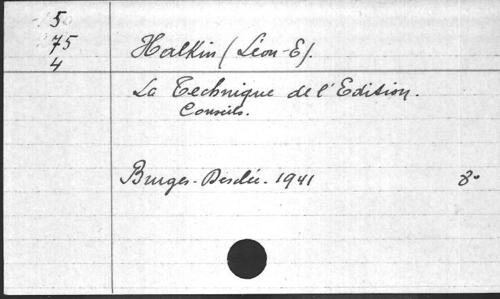 5
75
4
Halkin (Léon-E).
La Technique de l'Edition.
Conseils.
Bruges-Desclée. 1941 8°